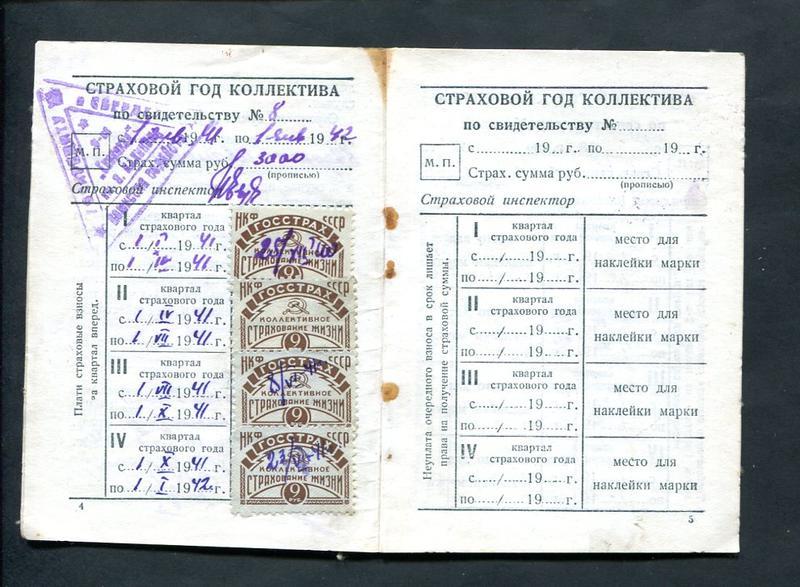 СТРАХОВОЙ ГОД КОЛЛЕКТИВА
по свидетельству № 8
с 1 янв 1941 г. по 1 янв 1942
М. П.
Страх. сумма руб. 3000
(прописью)
Страховой инспектор
Плати страховые взносы
за квартал вперед.
I квартал
страхового года
с 1/I 1941 г.
по 1/IV 1941 г.
II квартал
страхового года
с 1/IV 1941 г.
по 1/VII 1941 г.
III квартал
страхового года
с 1/VII 1941 г.
по 1/X 1941 г.
IV квартал
страхового года
с 1/X 1941 г.
по 1/I 1942 г.
НКФ СССР
ГОССТРАХ
КОЛЛЕКТИВНОЕ
СТРАХОВАНИЕ ЖИЗНИ
9 РУБ
НКФ СССР
ГОССТРАХ
КОЛЛЕКТИВНОЕ
СТРАХОВАНИЕ ЖИЗНИ
9 РУБ
НКФ СССР
ГОССТРАХ
КОЛЛЕКТИВНОЕ
СТРАХОВАНИЕ ЖИЗНИ
9 РУБ
НКФ СССР
ГОССТРАХ
КОЛЛЕКТИВНОЕ
СТРАХОВАНИЕ ЖИЗНИ
9 РУБ
4
СТРАХОВОЙ ГОД КОЛЛЕКТИВА
по свидетельству №
с 19 г. по 19 г.
М. П.
Страх. сумма руб.
(прописью)
Страховой инспектор
Неуплата очередного взноса в срок лишает
права на получение страховой суммы.
I квартал
страхового года
с / 19 г.
по / 19 г.
место для
наклейки марки
II квартал
страхового года
с / 19 г.
по / 19 г.
место для
наклейки марки
III квартал
страхового года
с / 19 г.
по / 19 г.
место для
наклейки марки
IV квартал
страхового года
с / 19 г.
по / 19 г.
место для
наклейки марки
5